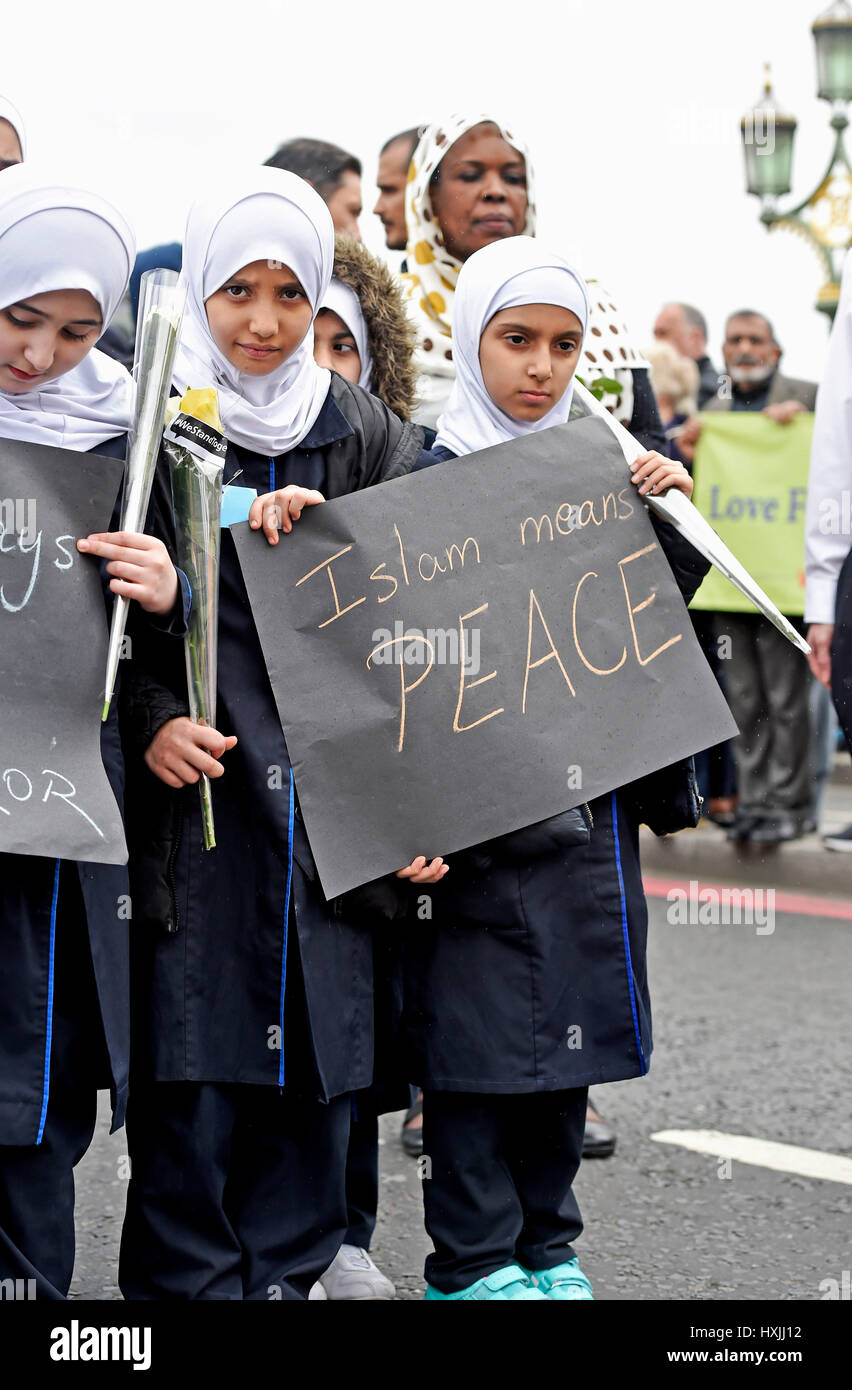 ays
ROR
#WeStandToge
Islam means
PEACE
Love F
alamy
Image ID: HXJJ12
www.alamy.com